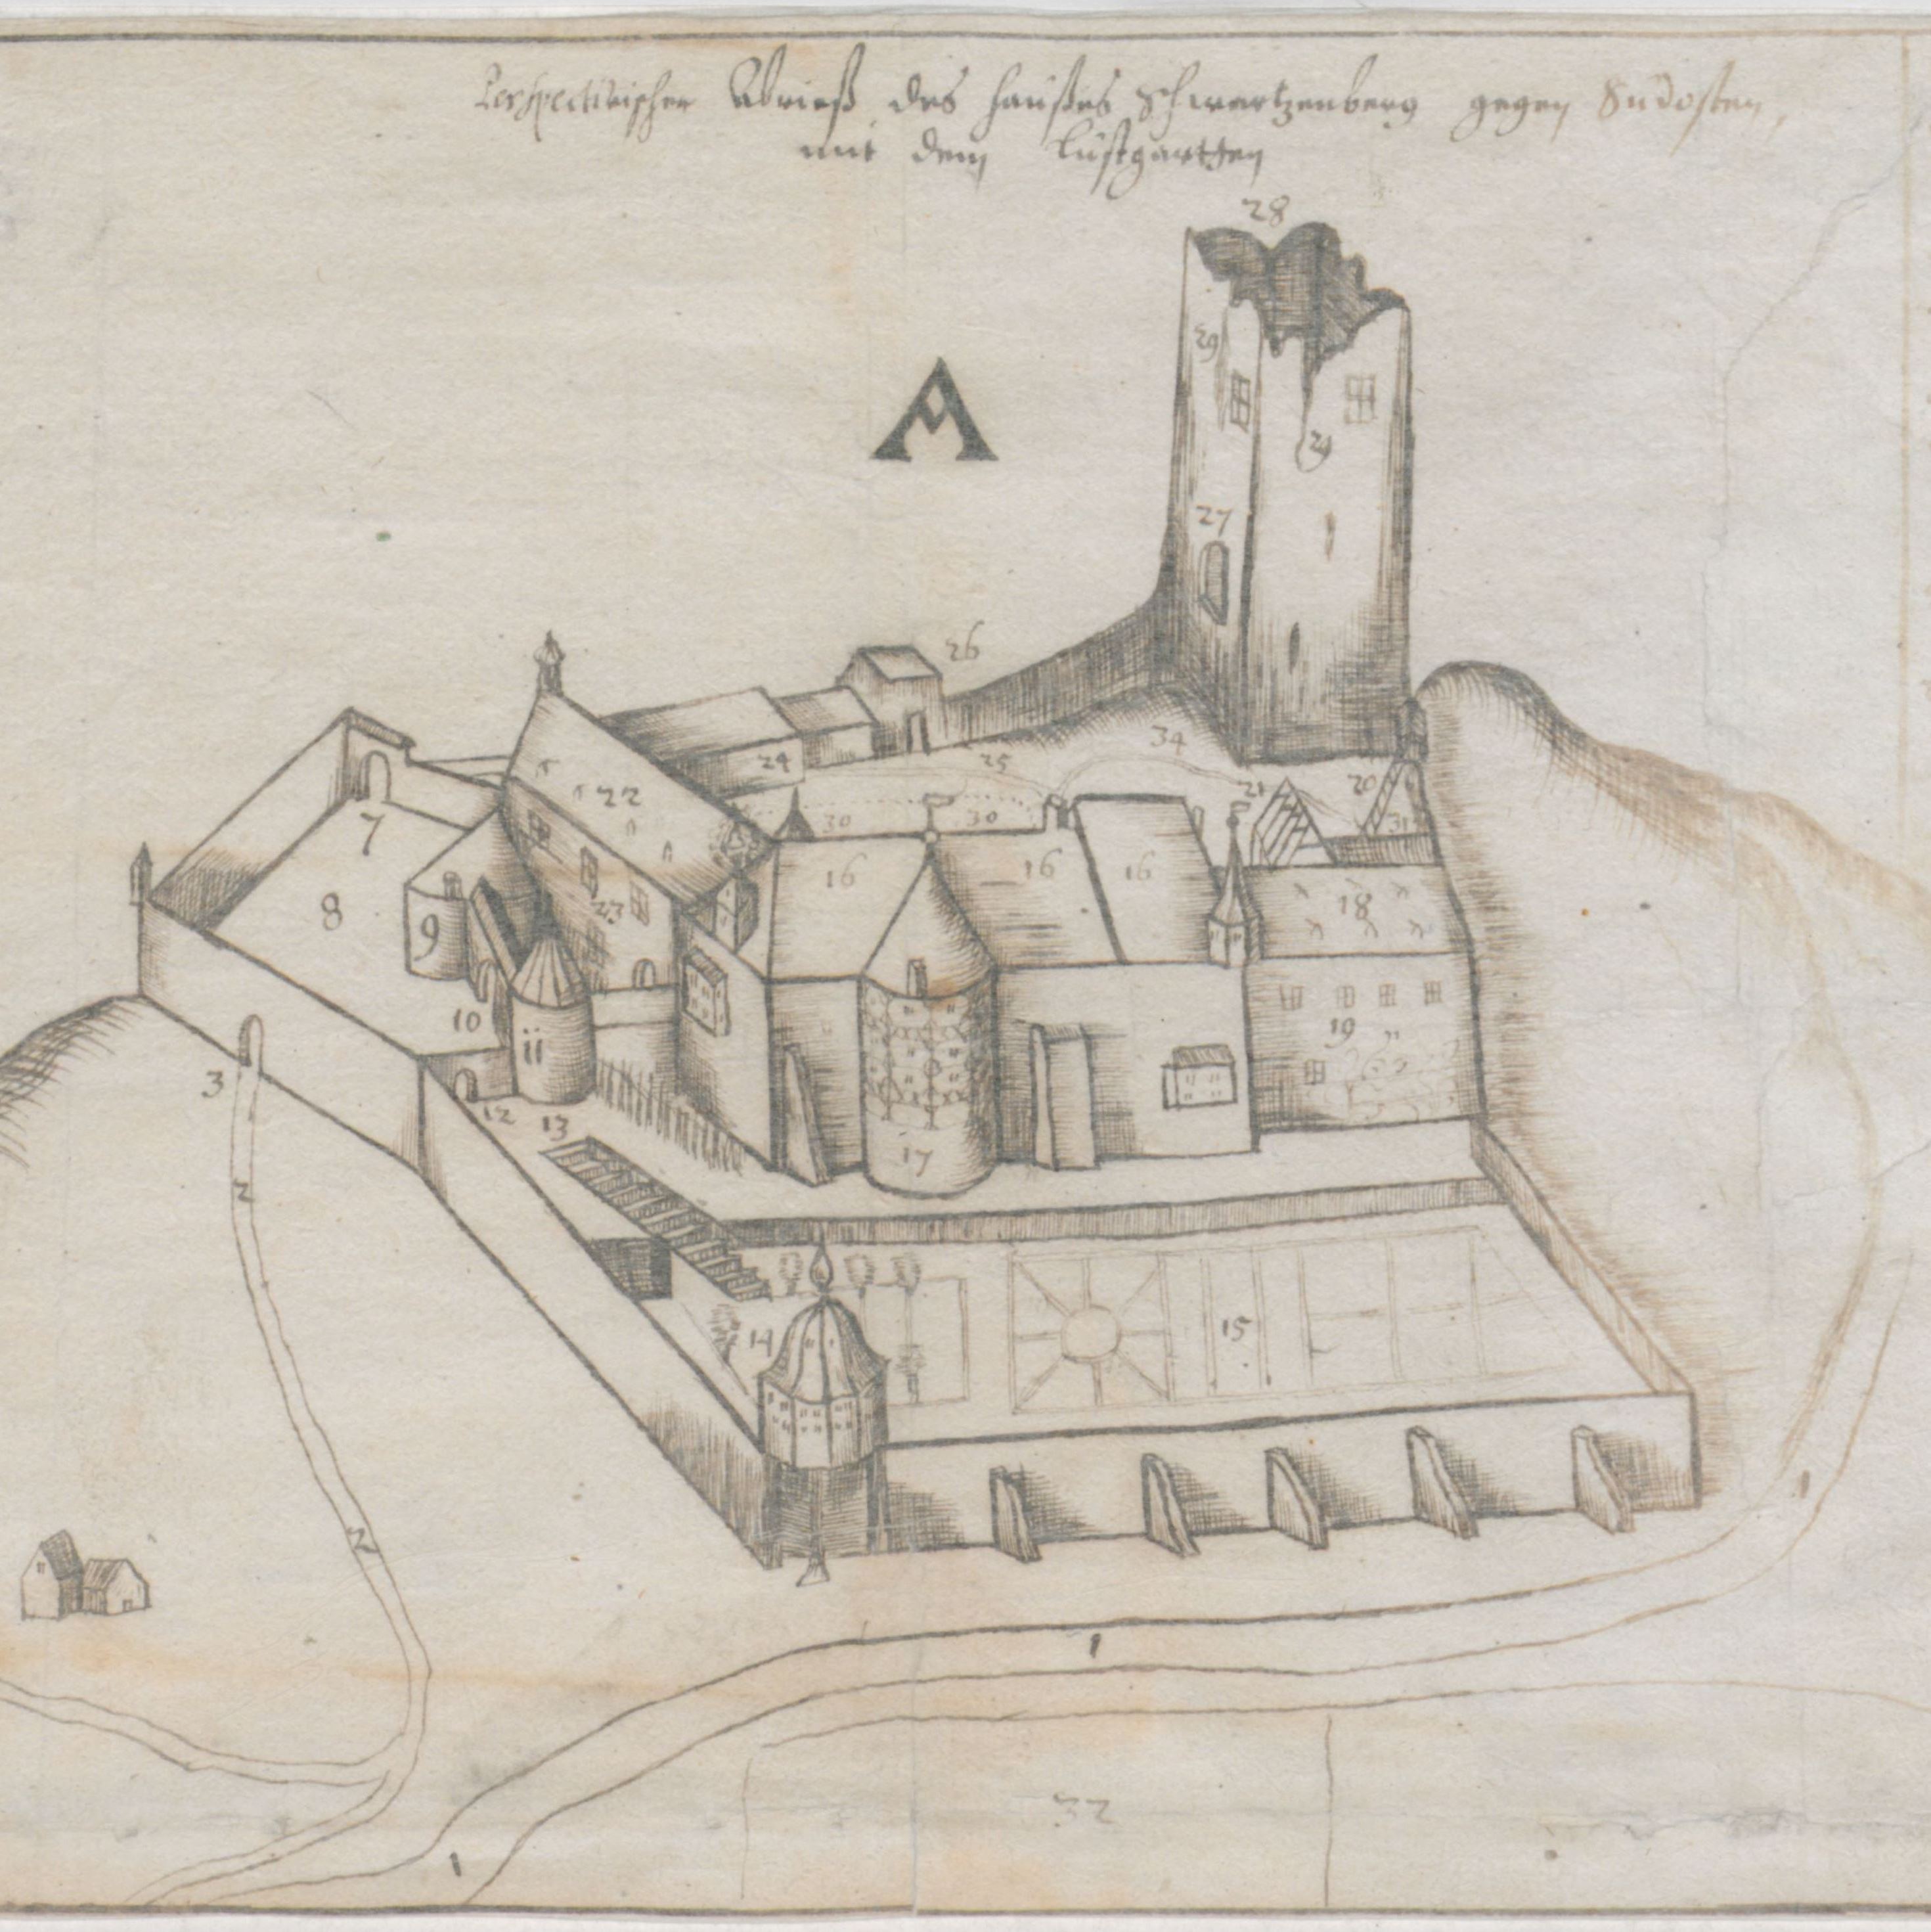 Perspectivischer Abrieß des Haußes Schwartzenberg gegen Sudosten,
mit dem Lustgartten
28
A
29
29
27
26
34
24
25
20
21
22
7
30
30
31
16
16
16
18
8
23
9
10
ii
19
3
12
13
17
2
14
15
1
2
1
32
1